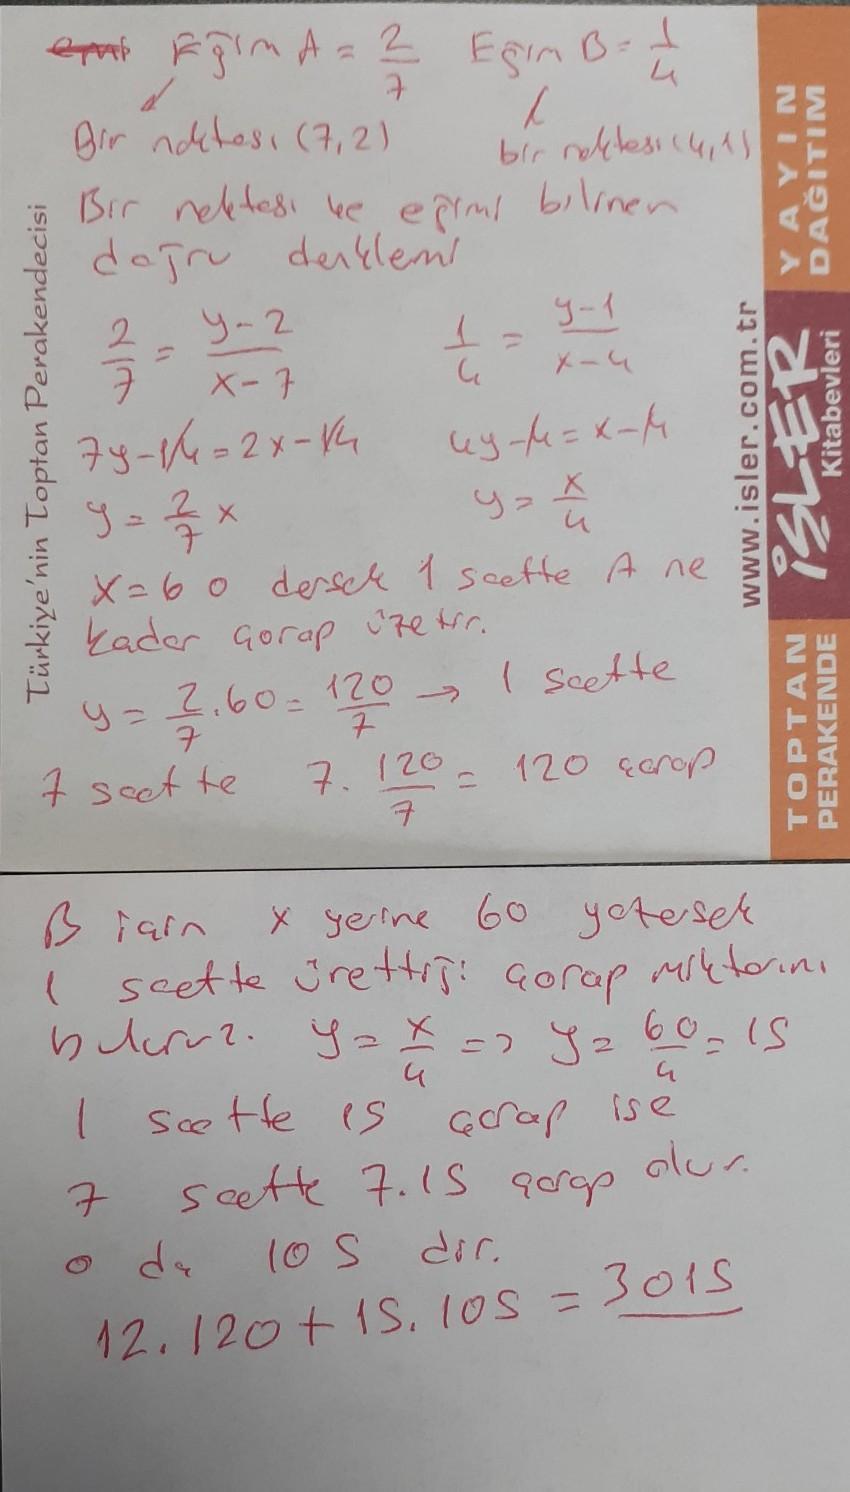 Eğim A = 2/7 Eğim B = 1/4
Bir noktası (7,2) bir noktası (4,1)
Bir noktası ve eğimi bilinen
doğru denklemi
2/7 = y-2/x-7 1/4 = y-1/x-4
7y-14=2x-14 4y-4=x-4
y = 2/7 x y = x/4
x=60 dersek 1 saatte A ne
kadar çorap üretir.
y = 2/7 . 60 = 120/7 → 1 saatte
7 saatte 7. 120/7 = 120 çorap
B için x yerine 60 yazarsak
1 saatte ürettiği çorap miktarını
buluruz. y = x/4 => y = 60/4 = 15
1 saatte 15 çorap ise
7 saatte 7.15 çorap olur.
o da 105 dir.
12.120 + 15.105 = 3015
Türkiye'nin Toptan Perakendecisi
www.isler.com.tr
YAYIN
DAĞITIM
İŞLER
Kitabevleri
TOPTAN
PERAKENDE